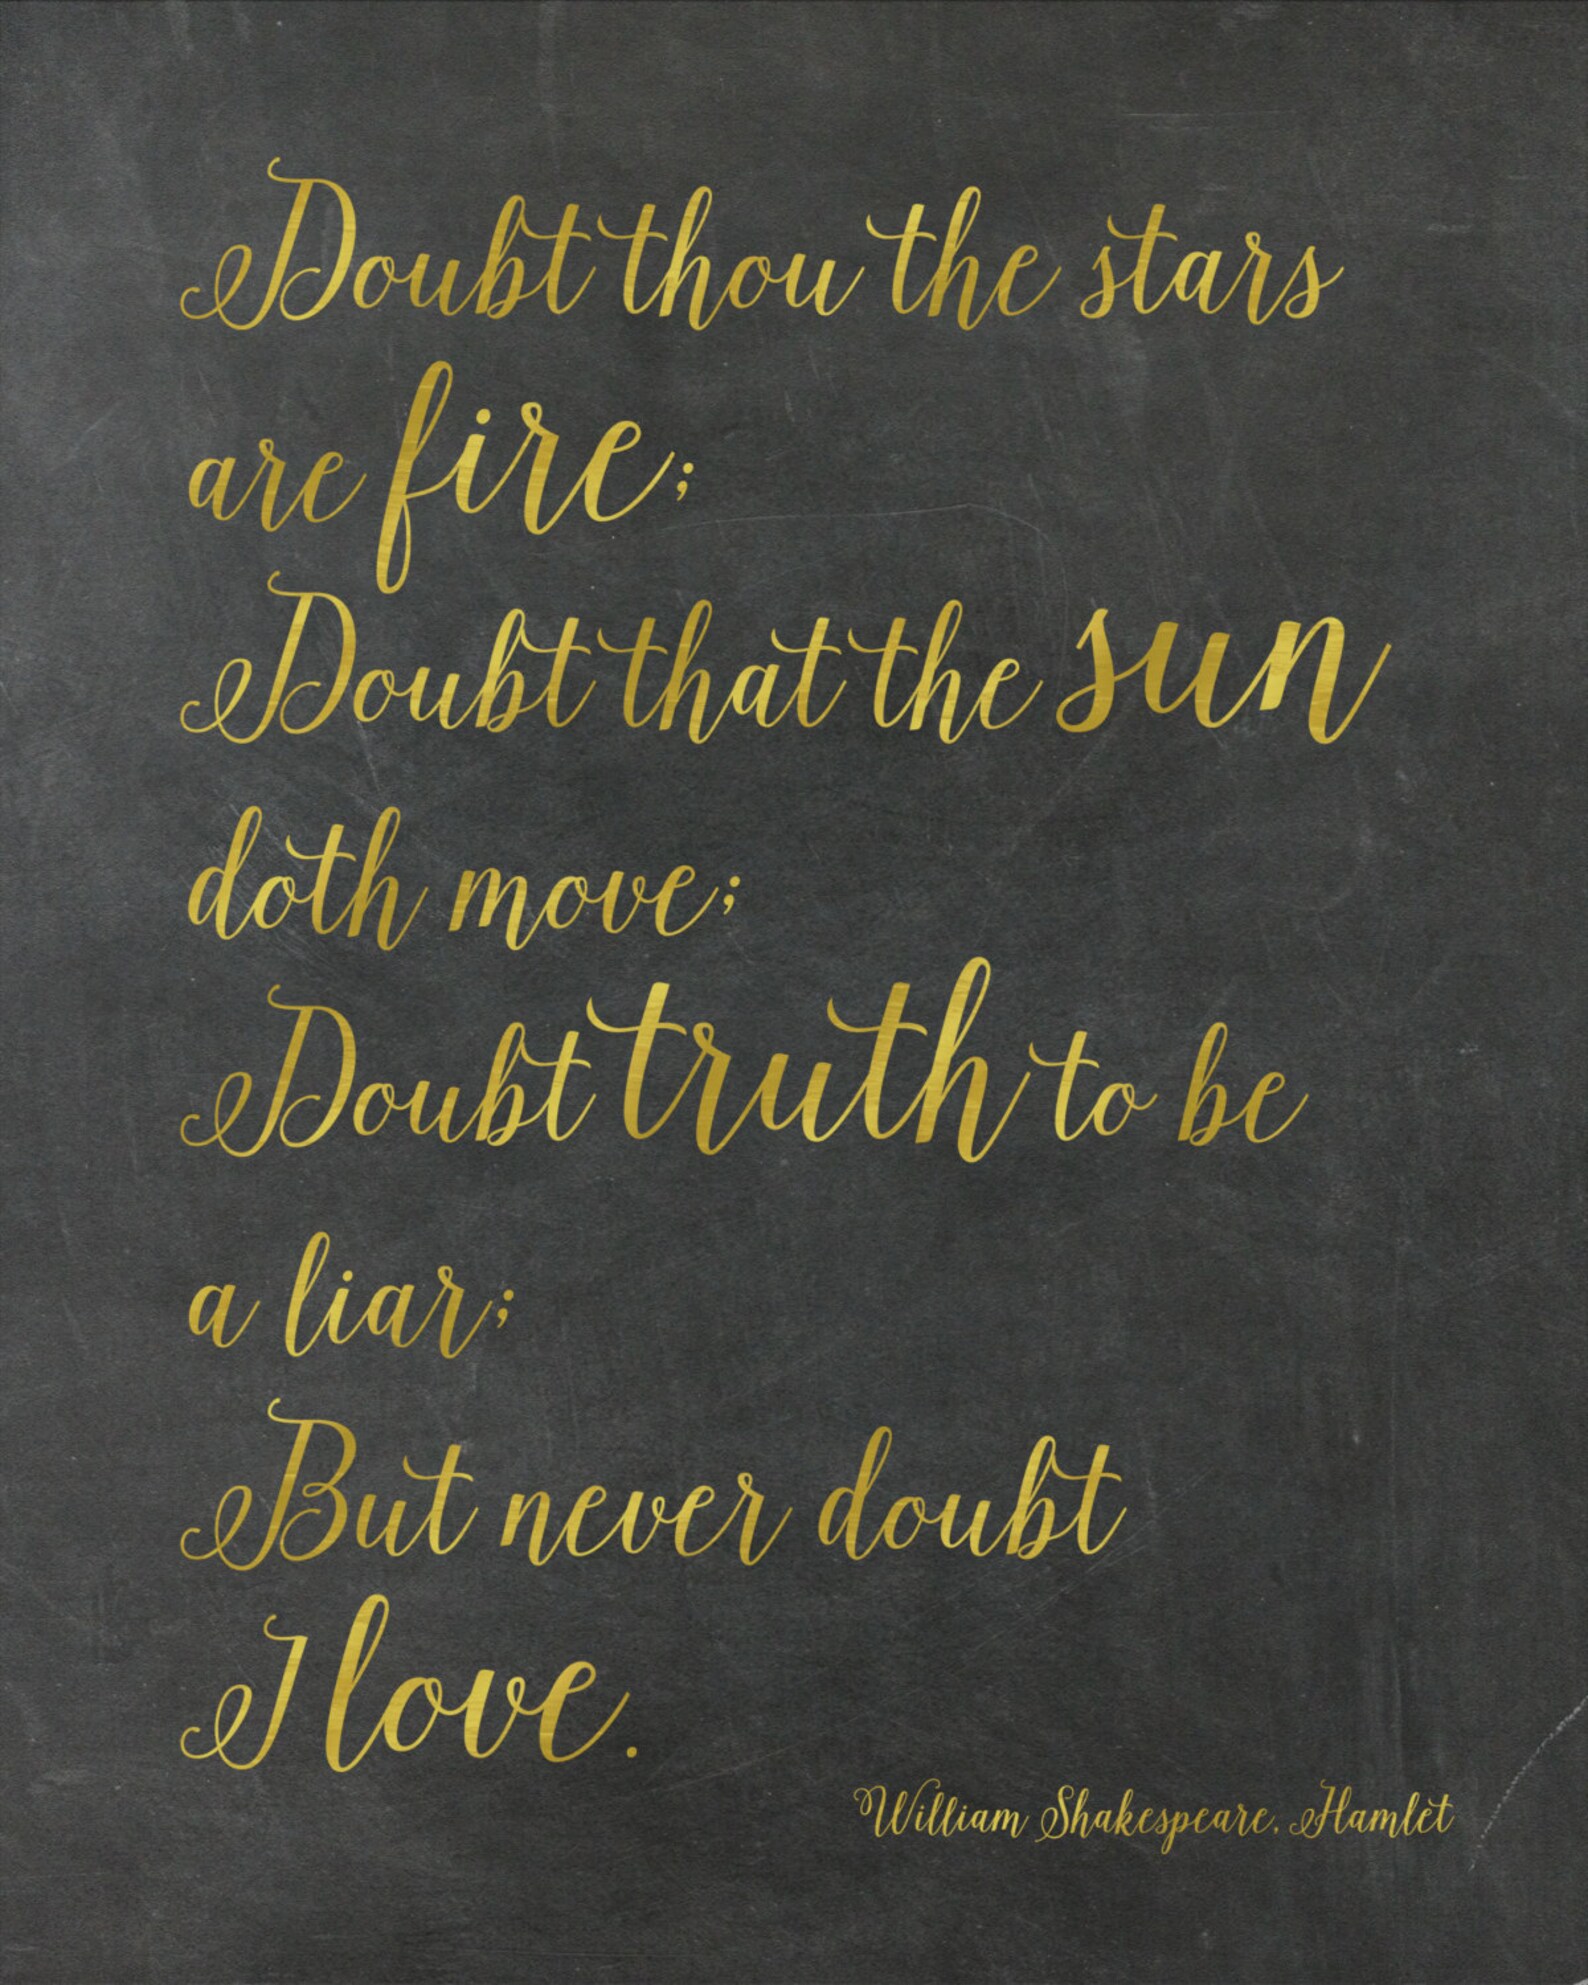 Doubt thou the stars
are fire;
Doubt that the sun
doth move;
Doubt truth to be
a liar;
But never doubt
I love.
William Shakespeare, Hamlet